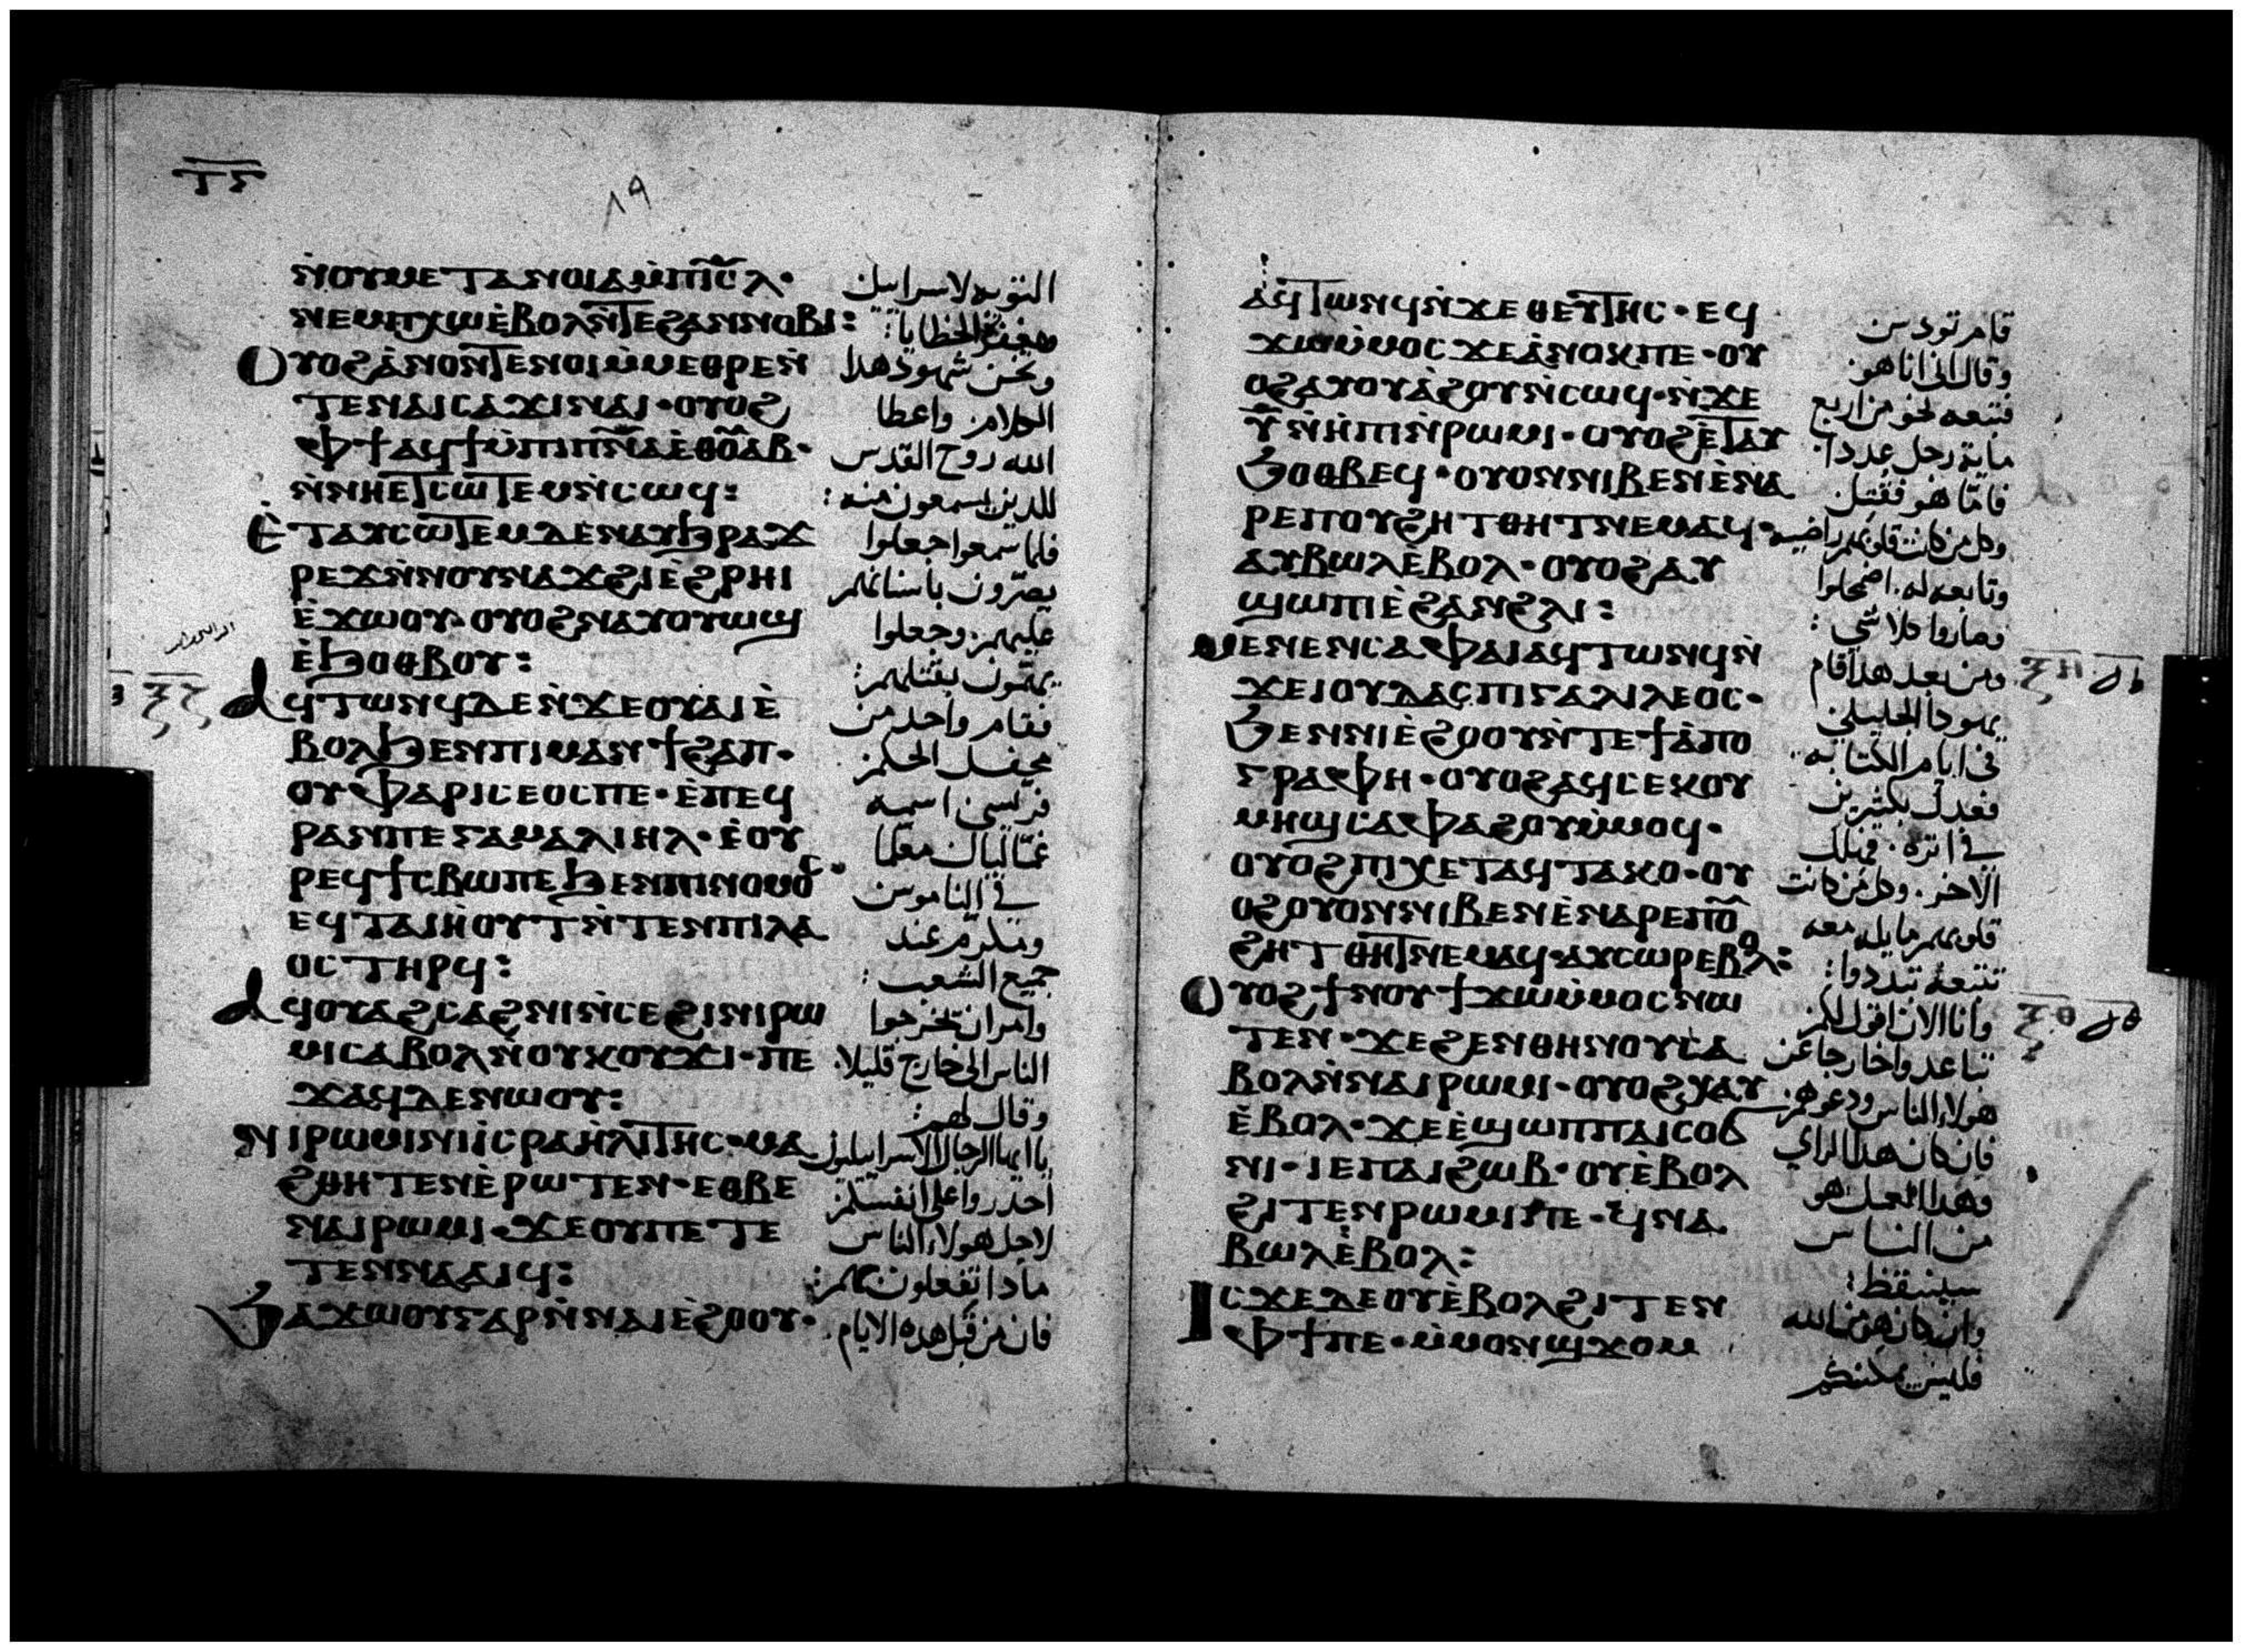 ⲧ̅ⲋ̅
٨٩
ⲛ̀ⲟⲩⲙⲉⲧⲁⲛⲟⲓⲁⲙ̀ⲡⲓⲥ̅ⲗ̅·
ⲛⲉⲙⲡⲭⲱⲉ̀ⲃⲟⲗⲛ̀ⲧⲉϩⲁⲛⲛⲟⲃⲓ:
ⲟⲩⲟϩⲁ̀ⲛⲟⲛⲧⲉⲛⲟⲓⲙ̀ⲙⲉⲑⲣⲉⲛ̀
ⲧⲉⲛⲁⲓⲥⲁϫⲓⲛⲁⲓ·ⲟⲩⲟϩ
ⲫϯⲁϥϯⲙ̀ⲡⲓⲡⲛ̅ⲁⲉ̀ⲑⲟ̅ⲁⲃ·
ⲛ̀ⲛⲏⲉⲧⲥⲱⲧⲉⲙⲛ̀ⲥⲱϥ:
ⲉ̀ⲧⲁⲩⲥⲱⲧⲉⲙⲇⲉⲛⲁⲩϧⲣⲁϫ
ⲣⲉϫⲛ̀ⲛⲟⲩⲛⲁϫϩⲓⲉ̀ϩⲣⲏⲓ
ⲉ̀ϫⲱⲟⲩ·ⲟⲩⲟϩⲛⲁⲩⲟⲩⲱϣ
ⲉ̀ϧⲟⲑⲃⲟⲩ:
ⲁϥⲧⲱⲛϥⲇⲉⲛ̀ϫⲉⲟⲩⲁⲓⲉ̀
ⲃⲟⲗϧⲉⲛⲡⲓⲙⲁⲛϯϩⲁⲡ·
ⲟⲩⲫⲁⲣⲓⲥⲉⲟⲥⲡⲉ·ⲉ̀ⲡⲉϥ
ⲣⲁⲛⲡⲉⲅⲁⲙⲁⲗⲓⲏⲗ·ⲉ̀ⲟⲩ
ⲣⲉϥϯⲥⲃⲱⲡⲉϧⲉⲛⲡⲓⲛⲟⲙⲟⲥ·
ⲉϥⲧⲁⲓⲏ̀ⲟⲩⲧⲛ̀ⲧⲉⲛⲡⲓⲗⲁ
ⲟⲥⲧⲏⲣϥ:
ⲁϥⲟⲩⲁϩⲥⲁϩⲛⲓⲛ̀ⲥⲉϩⲓⲛⲓⲣⲱ
ⲙⲓⲥⲁⲃⲟⲗⲛ̀ⲟⲩⲕⲟⲩϫⲓ·ⲡⲉ
ϫⲁϥⲇⲉⲛⲱⲟⲩ:
ⲛⲓⲣⲱⲙⲓⲛⲓⲓ̀ⲥⲣⲁⲏ̀ⲗⲓⲧⲏⲥ·ⲙⲁ
ϩⲑⲏⲧⲉⲛⲉ̀ⲣⲱⲧⲉⲛ·ⲉⲑⲃⲉ
ⲛⲁⲓⲣⲱⲙⲓ·ϫⲉⲟⲩⲡⲉⲧⲉ
ⲧⲉⲛⲛⲁⲁⲓϥ:
ϧⲁϫⲱⲟⲩⲅⲁⲣⲛ̀ⲛⲁⲓⲉ̀ϩⲟⲟⲩ·
التوبه لاسراييل
ومغفرة الخطايا:
ونحن شهود هذا
الكلام. واعطا
الله روح القدس
للدين يسمعون منه:
فلما سمعوا جعلوا
يصرّون باسنانهم
عليهم. وجعلوا
يهمّون بقتلهم:
فقام واحد من
محفل الحكم
فرّيسى اسمه
غمّاليال معلما
في الناموس
ومكرّم عند
جميع الشعب:
وامر ان تخرجوا
الناس الى خارج قليلا.
وقال لهم:
يا ايها الرجال الاسراييليون
احدروا على انفسكم
لاجل هولاء الناس
مادا تفعلون بهم:
فان من قبل هده الايام.
ⲝ̅ⲍ̅
ⲁϥⲧⲱⲛϥⲛ̀ϫⲉⲑⲉⲩⲧⲏⲥ·ⲉϥ
ϫⲱⲙ̀ⲙⲟⲥϫⲉⲁ̀ⲛⲟⲕⲡⲉ·ⲟⲩ
ⲟϩⲁⲩⲟⲩⲁ̀ϩⲟⲩⲛ̀ⲥⲱϥ·ⲛ̀ϫⲉ
ⲩ̅ⲛ̀ⲏ̀ⲡⲓⲛ̀ⲣⲱⲙⲓ·ⲟⲩⲟϩⲉ̀ⲧⲁⲩ
ϧⲟⲑⲃⲉϥ·ⲟⲩⲟⲛⲛⲓⲃⲉⲛⲉ̀ⲛⲁ
ⲣⲉⲡⲟⲩϩⲏⲧⲑⲏⲧⲛⲉⲙⲁϥ·
ⲁⲩⲃⲱⲗⲉ̀ⲃⲟⲗ·ⲟⲩⲟϩⲁⲩ
ϣⲱⲡⲓⲉ̀ϩⲁⲛϩⲗⲓ:
ⲙⲉⲛⲉⲛⲥⲁⲫⲁⲓⲁϥⲧⲱⲛϥⲛ̀
ϫⲉⲓⲟⲩⲇⲁⲥⲡⲓⲅⲁⲗⲓⲗⲉⲟⲥ·
ϧⲉⲛⲛⲓⲉ̀ϩⲟⲟⲩⲛ̀ⲧⲉϯⲁ̀ⲡⲟ
ⲅⲣⲁⲫⲏ·ⲟⲩⲟϩⲁϥⲥⲉⲕⲟⲩ
ⲙⲏϣⲥⲁⲫⲁϩⲟⲩⲙ̀ⲙⲟϥ·
ⲟⲩⲟϩⲡⲓⲭⲉⲧⲁϥⲧⲁⲕⲟ·ⲟⲩ
ⲟϩⲟⲩⲟⲛⲛⲓⲃⲉⲛⲉ̀ⲛⲁⲣⲉⲡⲟ̅
ϩⲏⲧⲑⲏⲧⲛⲉⲙⲁϥ·ⲁⲩⲥⲱⲣⲉⲃⲟⲗ:
ⲟⲩⲟϩϯⲛⲟⲩϯϫⲱⲙ̀ⲙⲟⲥⲛⲱ
ⲧⲉⲛ·ϫⲉϩⲉⲛⲑⲏⲛⲟⲩⲥⲁ
ⲃⲟⲗⲛ̀ⲛⲁⲓⲣⲱⲙⲓ·ⲟⲩⲟϩⲭⲁⲩ
ⲉ̀ⲃⲟⲗ·ϫⲉⲉ̀ϣⲱⲡⲡⲁⲓⲥⲟϭ
ⲛⲓ·ⲓⲉⲡⲁⲓϩⲱⲃ·ⲟⲩⲉ̀ⲃⲟⲗ
ϩⲓⲧⲉⲛⲣⲱⲙⲓⲡⲉ·ϥⲛⲁ
ⲃⲱⲗⲉ̀ⲃⲟⲗ:
ⲓⲥϫⲉⲇⲉⲟⲩⲉ̀ⲃⲟⲗϩⲓⲧⲉⲛ
ⲫϯⲡⲉ·ⲙ̀ⲙⲟⲛϣϫⲟⲙ
قام تودس
وقال انى انا هو
فتبعه نحو من اربع
ماية رجل عددا.
فامّا هو فقتل
وكل من كانت قلوبهم راضيه
وتابعه له. اضمحلوا
وصاروا كلا شي:
ومن بعد هدا قام
يهودا الجليلى
فى ايام الكتابه.
فعدل بكثيرين
في اثره. فهلك
الاخر. وكل من كانت
قلوبهم مايله معه
تتبعه تبددوا:
وانا الان اقول لكم
تباعدوا خارجا عن
هولاء الناس ودعوهم
فان كان هدا الراي
وهدا العمل هو
من الناس
سينتقظ:
وان كان هو من الله
فليس يمكنكم
ⲝ̅ⲏ̅
ⲝ̅ⲑ̅